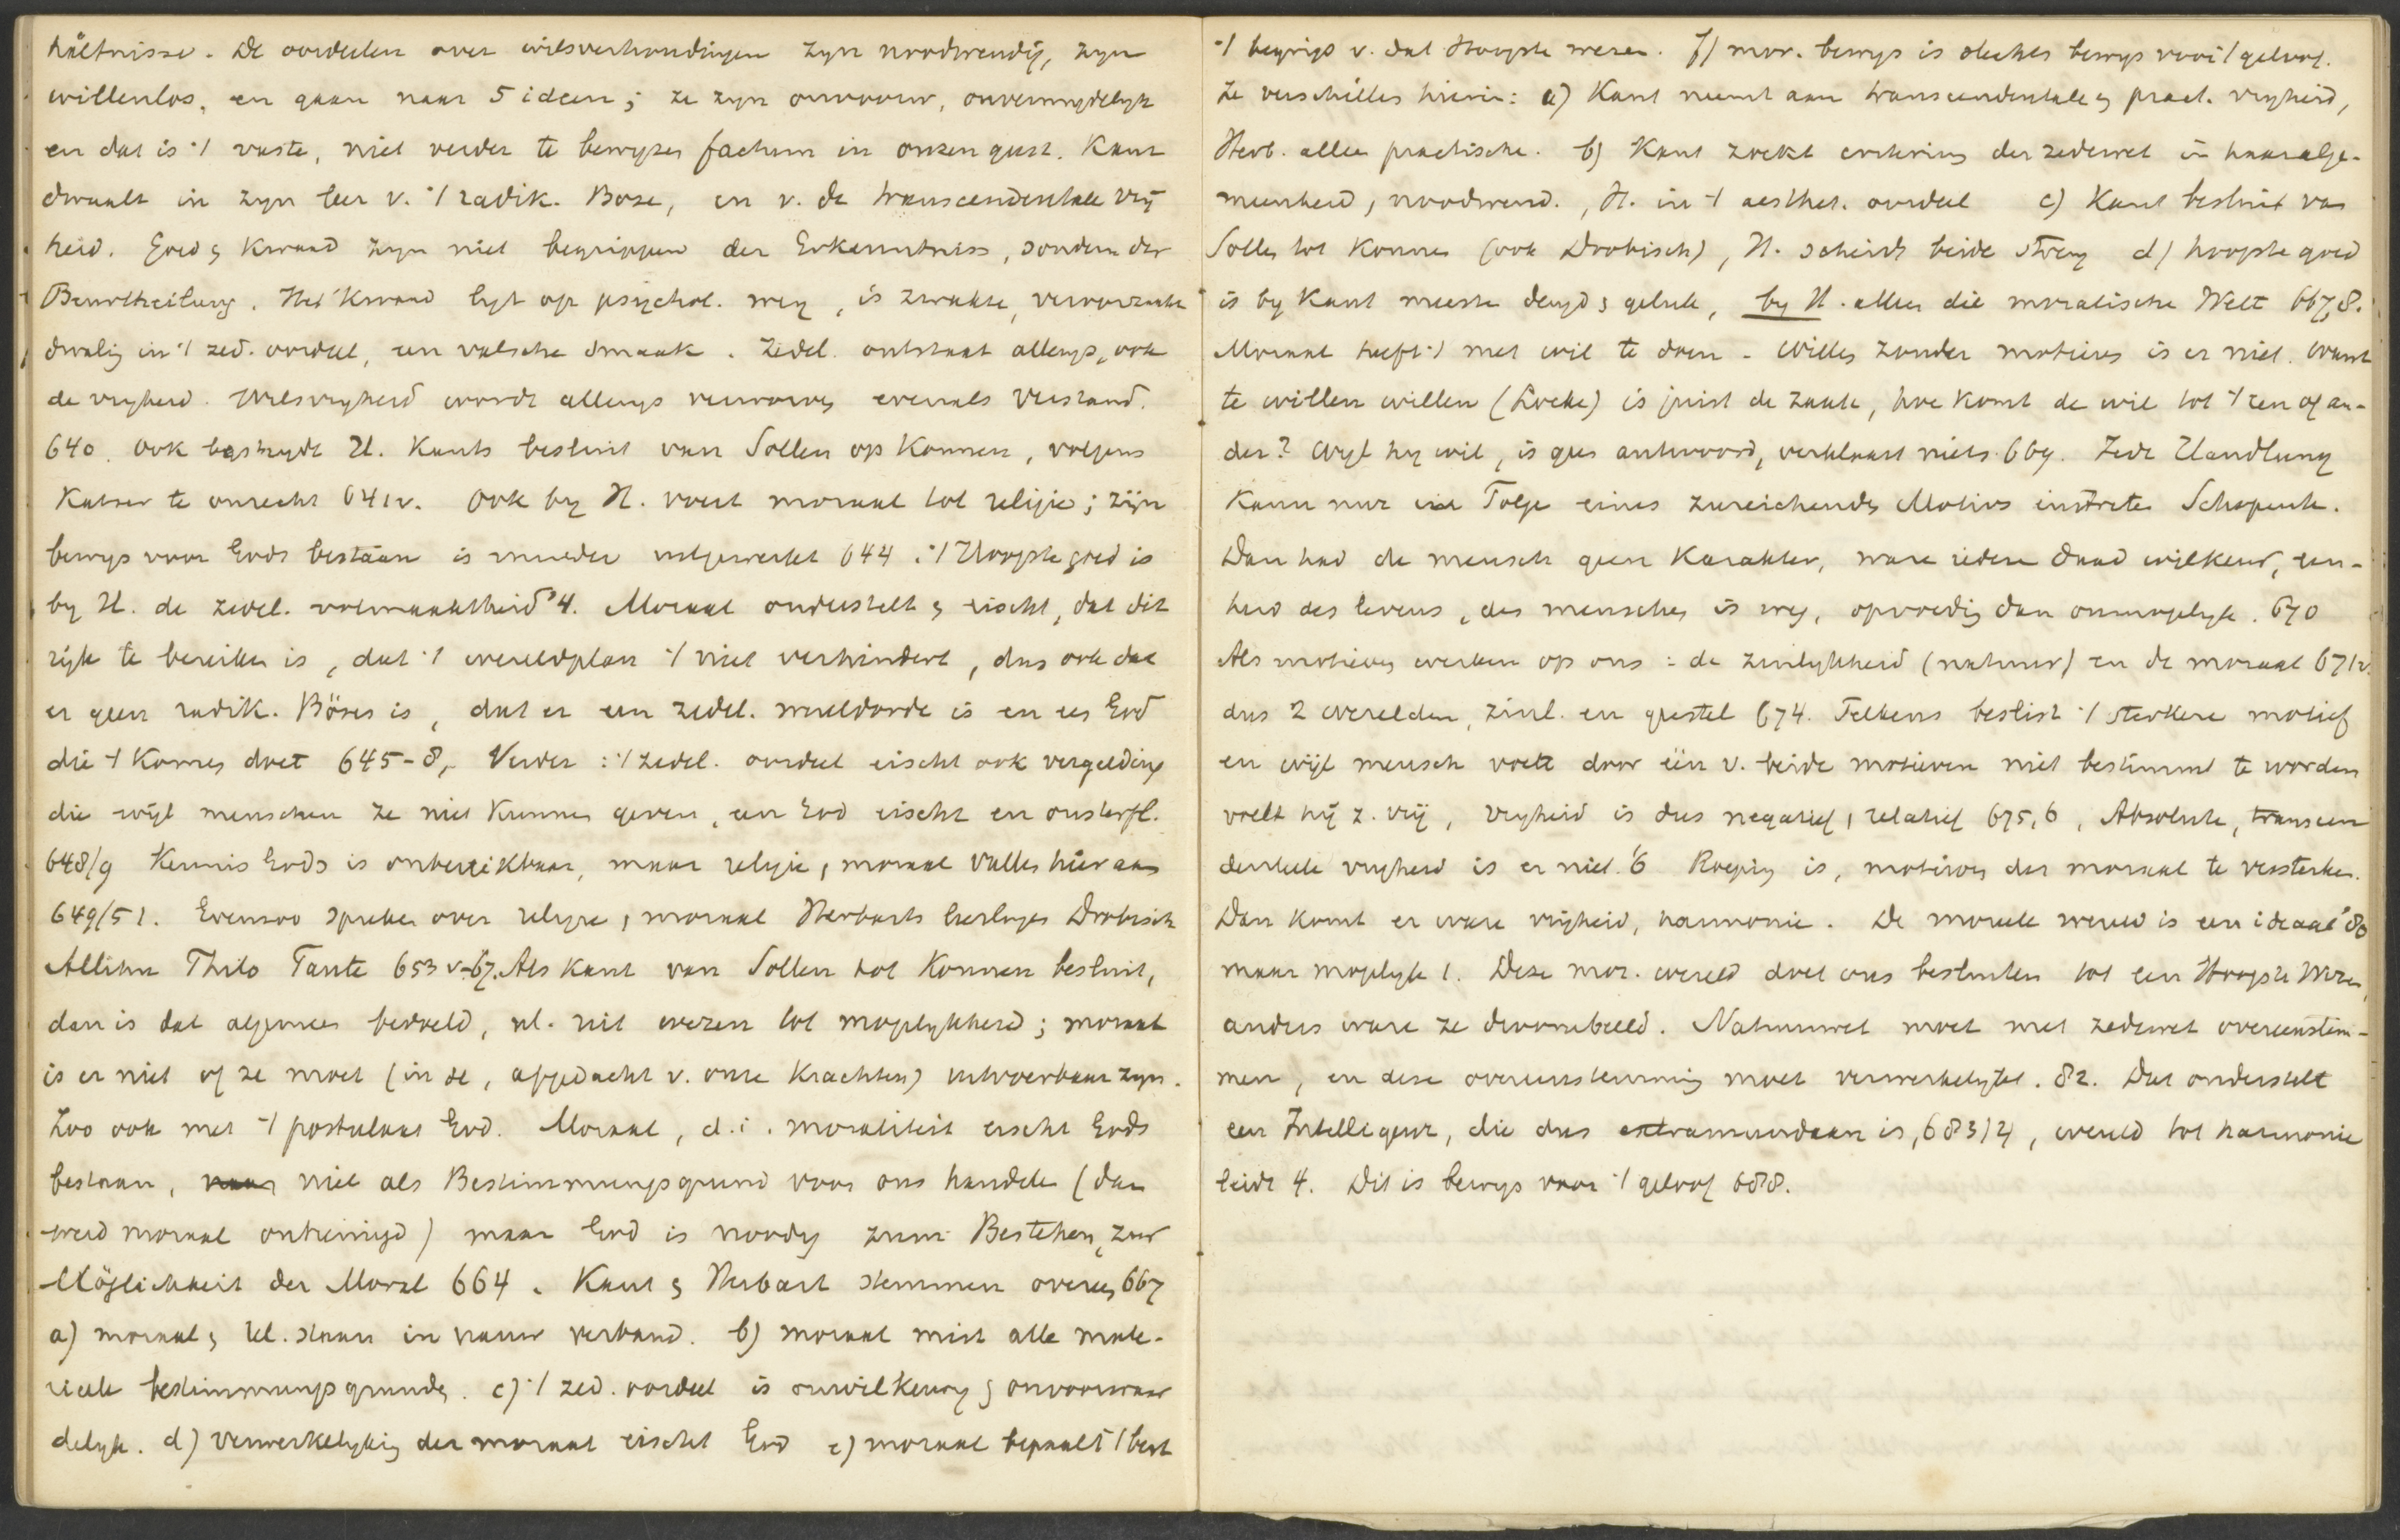 hältnisse. De oordeelen over wilsverhoudingen zyn noodwendig, zyn
willenlos, en gaan naar 5 ideen; ze zyn onvoorw, onvermydelyk
en dat is 't vaste, niet verder te bewyzen factum in onzen geest. Kant
dwaalt in zyn leer v. 't radik. Boze, en v. de transcendentale vrij
heid. Goed & Kwaad zyn niet begrippen der Erkenntniss, sondern der
Beurtheilung. Het Kwaad ligt op psychol. weg, is zwakte, veroorzaakt
dwaling in 't zed. oordeel, een valsche smaak. Zedel. ontstaat allengs, ook
de vryheid. Wilsvryheid wordt allengs verworven evenals Verstand.
640. Ook bestrydt H. Kants besluit van Sollen op Konnen, volgens
Katzer te onrecht 641v. Ook by H. voert moraal tot religie; zijn
bewys voor Gods bestaan is minder uitgewerkt 644. 't Hoogste goed is
by H. de zedel. volmaaktheid '4. Moraal onderstelt & eischt, dat dit
rijk te bereiken is, dat 't wereldplan 't niet verhindert, dus ook dat
er geen radik. Böses is, dat er een zedel. wereldorde is en een God
die 't Komen doet 645-8, Verder: 't zedel. oordeel eischt ook vergelding
die wijl menschen ze niet Kunnen geven, een God eischt en onsterfl.
648/9 Kennis Gods is onbereikbaar, maar religie, moraal vallen hier aan
649/51. Evenzoo spreken over religie, moraal Herbarts leerlingen Drobisch
Allihn Thilo Taute 653 v-67. Als Kant van Sollen tot Konnen besluit,
dan is dat algemeen bedoeld, nl. uit wezen tot mogelykheid; moraal
is er niet of ze moet (in se, afgedacht v. onze Krachten) uitvoerbaar zyn.
Zoo ook met 't postulaat God. Moraal, d.i. moraliteit eischt Gods
bestaan, niet als Bestimmungsgrund voor ons handelen (dan
werd moraal ontreinigd) maar God is noodig zum Bestehen, zur
Möglichkeit der Moral 664. Kant & Herbart stemmen overeen 667
a) moraal & rel. staan in nauw verband. b) moraal mist alle mate-
rieele bestimmungsgrunden. c) 't zed. oordeel is onwilkeurig & onvoorwaar
delyk. d) verwerkelyking der moraal eischt God e) moraal bepaalt 't best
't begrip v. dat Hoogste wezen. f) mor. bewys is slechts bewys voor 't geloof.
Ze verschillen hierin: a) Kant neemt aan transcendentale & pract. vryheid,
Herb. alleen practische. b) Kant zoekt criterium der zedewet in haar alge-
meenheid, noodwend., H. in 't aesthet. oordeel c) Kant besluit van
Sollen tot Konnen (ook Drobisch), H. scheidt beide streng d) hoogste goed
is by Kant meeste deugd & geluk, by H. alleen die moralische Welt 667,8.
Moraal heeft 't met wil te doen. Willen zonder motieven is er niet. want
te willen willen (Locke) is juist de zaak, hoe Komt de wil tot 't een of an-
der? Wyl hy wil, is geen antwoord, verklaart niets 669. Jede Handlung
Kann nur in Folge eines zureichenden Motivs eintreten Schopenh.
Dan had de mensch geen Karakter, ware iedere daad wilkeur, een-
heid des levens, des menschen is weg, opvoeding dan onmogelyk. 670
Als motieven werken op ons: de zinlykheid (natuur) en de moraal 671v.
dus 2 werelden, zinl. en geestel 674. Telkens beslist 't sterkere motief
en wijl mensch voelt door één v. beide motieven niet bestimmt te worden
voelt hij z. vrij, vryheid is dus negatief, relatief 675,6, Absolute, transcen
dentale vryheid is er niet. '6 Roeping is, motieven der moraal te versterken.
Dan komt er ware vrijheid, harmonie. De moreele wereld is een ideaal '80
maar mogelyk 1. Deze mor. wereld doet ons besluiten tot een Hoogste Wezen,
anders ware ze droombeeld. Natuurwet moet met zedewet overeenstem-
men, en deze overeenstemming moet verwerkelykt. 82. Dat onderstelt
een Intelligenz, die dus extramundaan is, 683/4, wereld tot harmonie
leidt 4. Dit is bewys voor 't geloof 688.